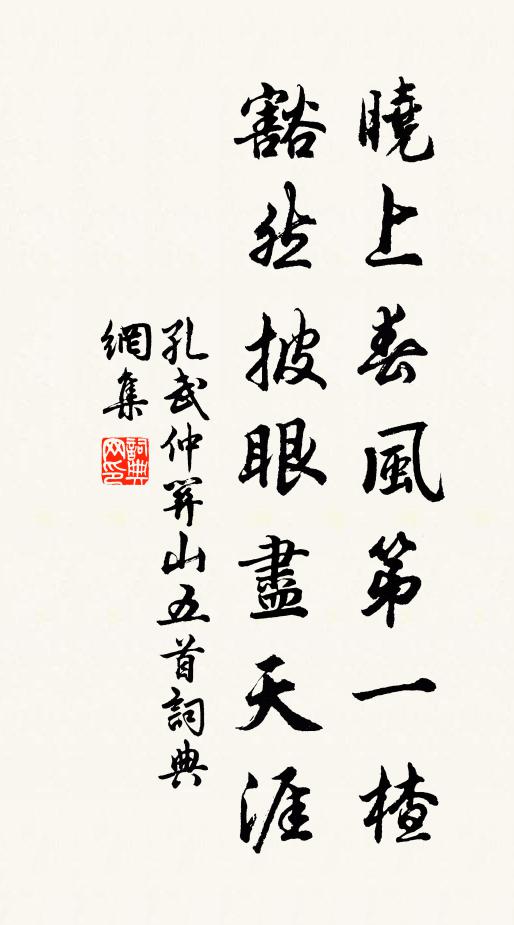 曉上春風第一楂
豁然披眼盡天涯
孔武仲羿山五首詞典
網集
詞典
网印